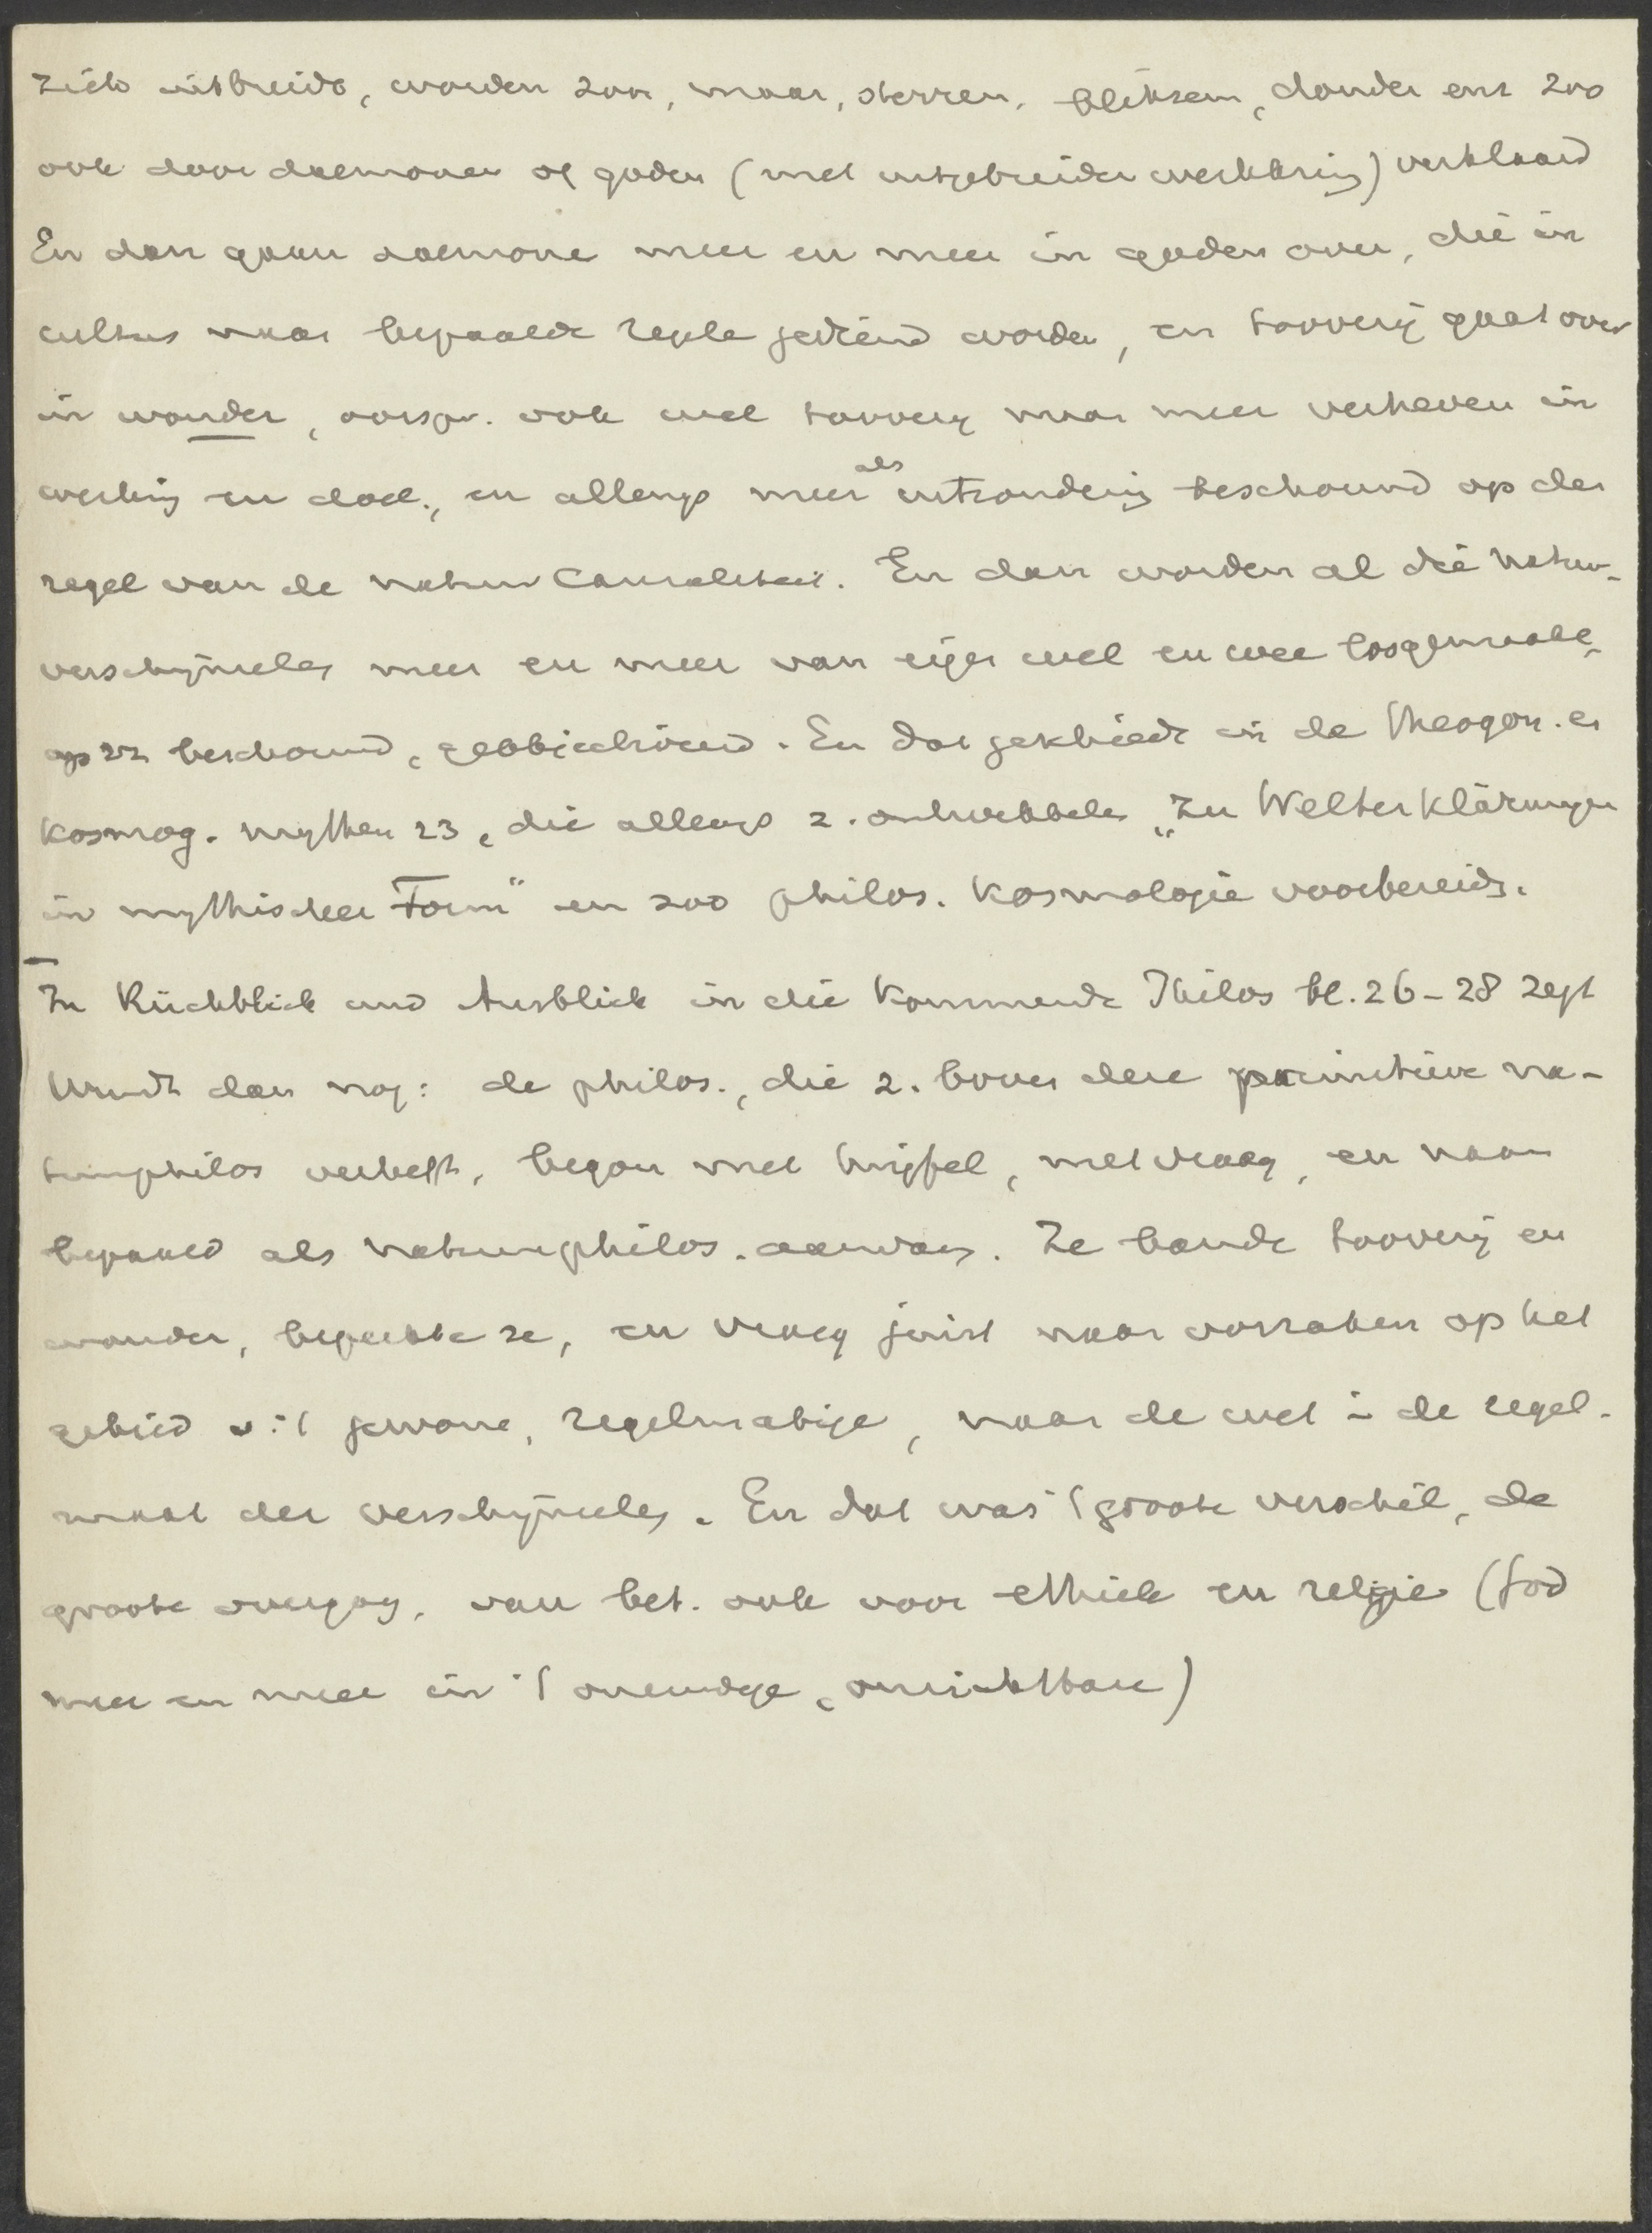 zich uitbreidt, worden zon, maan, sterren, bliksem, donder enz zoo
ook door daemonen of goden (met uitgebreider werkkring) verklaard
En dan gaan daemone meer en meer in goden over, die in
cultus naar bepaalde regels gediend worden, en toovery gaat over
in wonder, oorspr. ook wel toovery maar meer verheven in
werking en doel, en allengs meer als uitzondering beschouwd op den
regel van de natuur causaliteit. En dan worden al die natuur-
verschijnselen meer en meer van eigen wel en wee losgemaakt,
op zz beschouwd, geobjectiveerd. En dat geschiedt in de theogon. en
Kosmog. mythen 23, die allengs z. ontwikkelen "zu Welterklärungen
in mythischer Form" en zoo philos. Kosmologie voorbereidt.
In Rückblick und Ausblick in die Kommende Philos bl. 26-28 zegt
Wundt dan nog: de philos., die z. boven deze primitieve na-
tuurphilos verheft, begon met twijfel, met vraag, en naar
bepaald als natuurphilos. aanvang. Ze bande toovery en
wonder, beperkte ze, en vraag juist naar oorzaken op het
gebied v. 't gewone, regelmatige, naar de wet in de regel-
maat der verschijnselen. En dat was 't groote verschil, de
groote overgang, van bet. ook voor ethiek en religie (God
meer en meer in 't oneindige, onzichtbare)